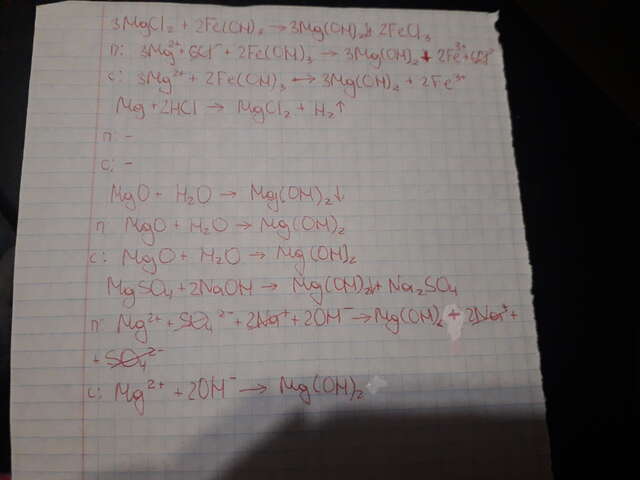 3MgCl₂ + 2Fe(OH)₃ → 3Mg(OH)₂↓ 2FeCl₃
П: 3Mg²⁺ + 6Cl⁻ + 2Fe(OH)₃ → 3Mg(OH)₂ + 2Fe³⁺ + 6Cl⁻
С: 3Mg²⁺ + 2Fe(OH)₃ → 3Mg(OH)₂ + 2Fe³⁺
Mg + 2HCl → MgCl₂ + H₂↑
П: -
С: -
MgO + H₂O → Mg(OH)₂↓
П: MgO + H₂O → Mg(OH)₂
С: MgO + H₂O → Mg(OH)₂
MgSO₄ + 2NaOH → Mg(OH)₂↓ + Na₂SO₄
П: Mg²⁺ + SO₄²⁻ + 2Na⁺ + 2OH⁻ → Mg(OH)₂ + 2Na⁺ +
+ SO₄²⁻
С: Mg²⁺ + 2OH⁻ → Mg(OH)₂